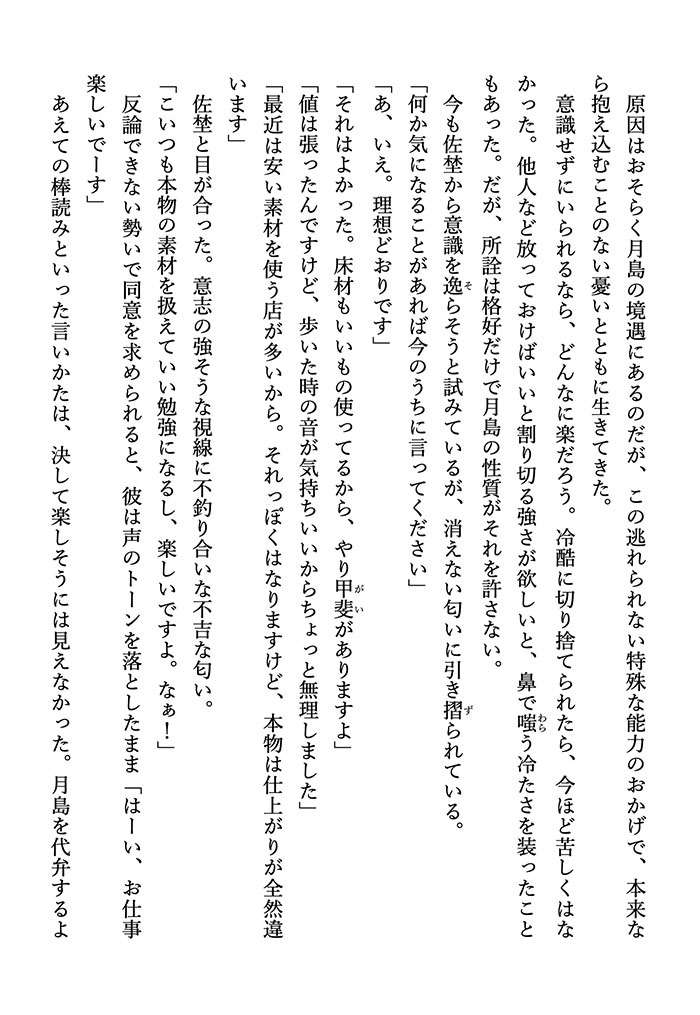 原因はおそらく月島の境遇にあるのだが、この逃れられない特殊な能力のおかげで、本来な
ら抱え込むことのない憂いとともに生きてきた。
意識せずにいられるなら、どんなに楽だろう。冷酷に切り捨てられたら、今ほど苦しくはな
かった。他人など放っておけばいいと割り切る強さが欲しいと、鼻で嗤う冷たさを装ったこと
もあった。だが、所詮は格好だけで月島の性質がそれを許さない。
今も佐埜から意識を逸らそうと試みているが、消えない匂いに引き摺られている。
「何か気になることがあれば今のうちに言ってください」
「あ、いえ。理想どおりです」
「それはよかった。床材もいいもの使ってるから、やり甲斐がありますよ」
「値は張ったんですけど、歩いた時の音が気持ちいいからちょっと無理しました」
「最近は安い素材を使う店が多いから。それっぽくはなりますけど、本物は仕上がりが全然違
います」
佐埜と目が合った。意志の強そうな視線に不釣り合いな不吉な匂い。
「こいつも本物の素材を扱えていい勉強になるし、楽しいですよ。なぁ！」
反論できない勢いで同意を求められると、彼は声のトーンを落としたまま「はーい、お仕事
楽しいでーす」
あえての棒読みといった言いかたは、決して楽しそうには見えなかった。月島を代弁するよ